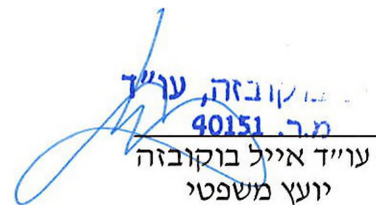 בוקובזה, עו"ד
מ.ר. 40151
עו"ד אייל בוקובזה
יועץ משפטי